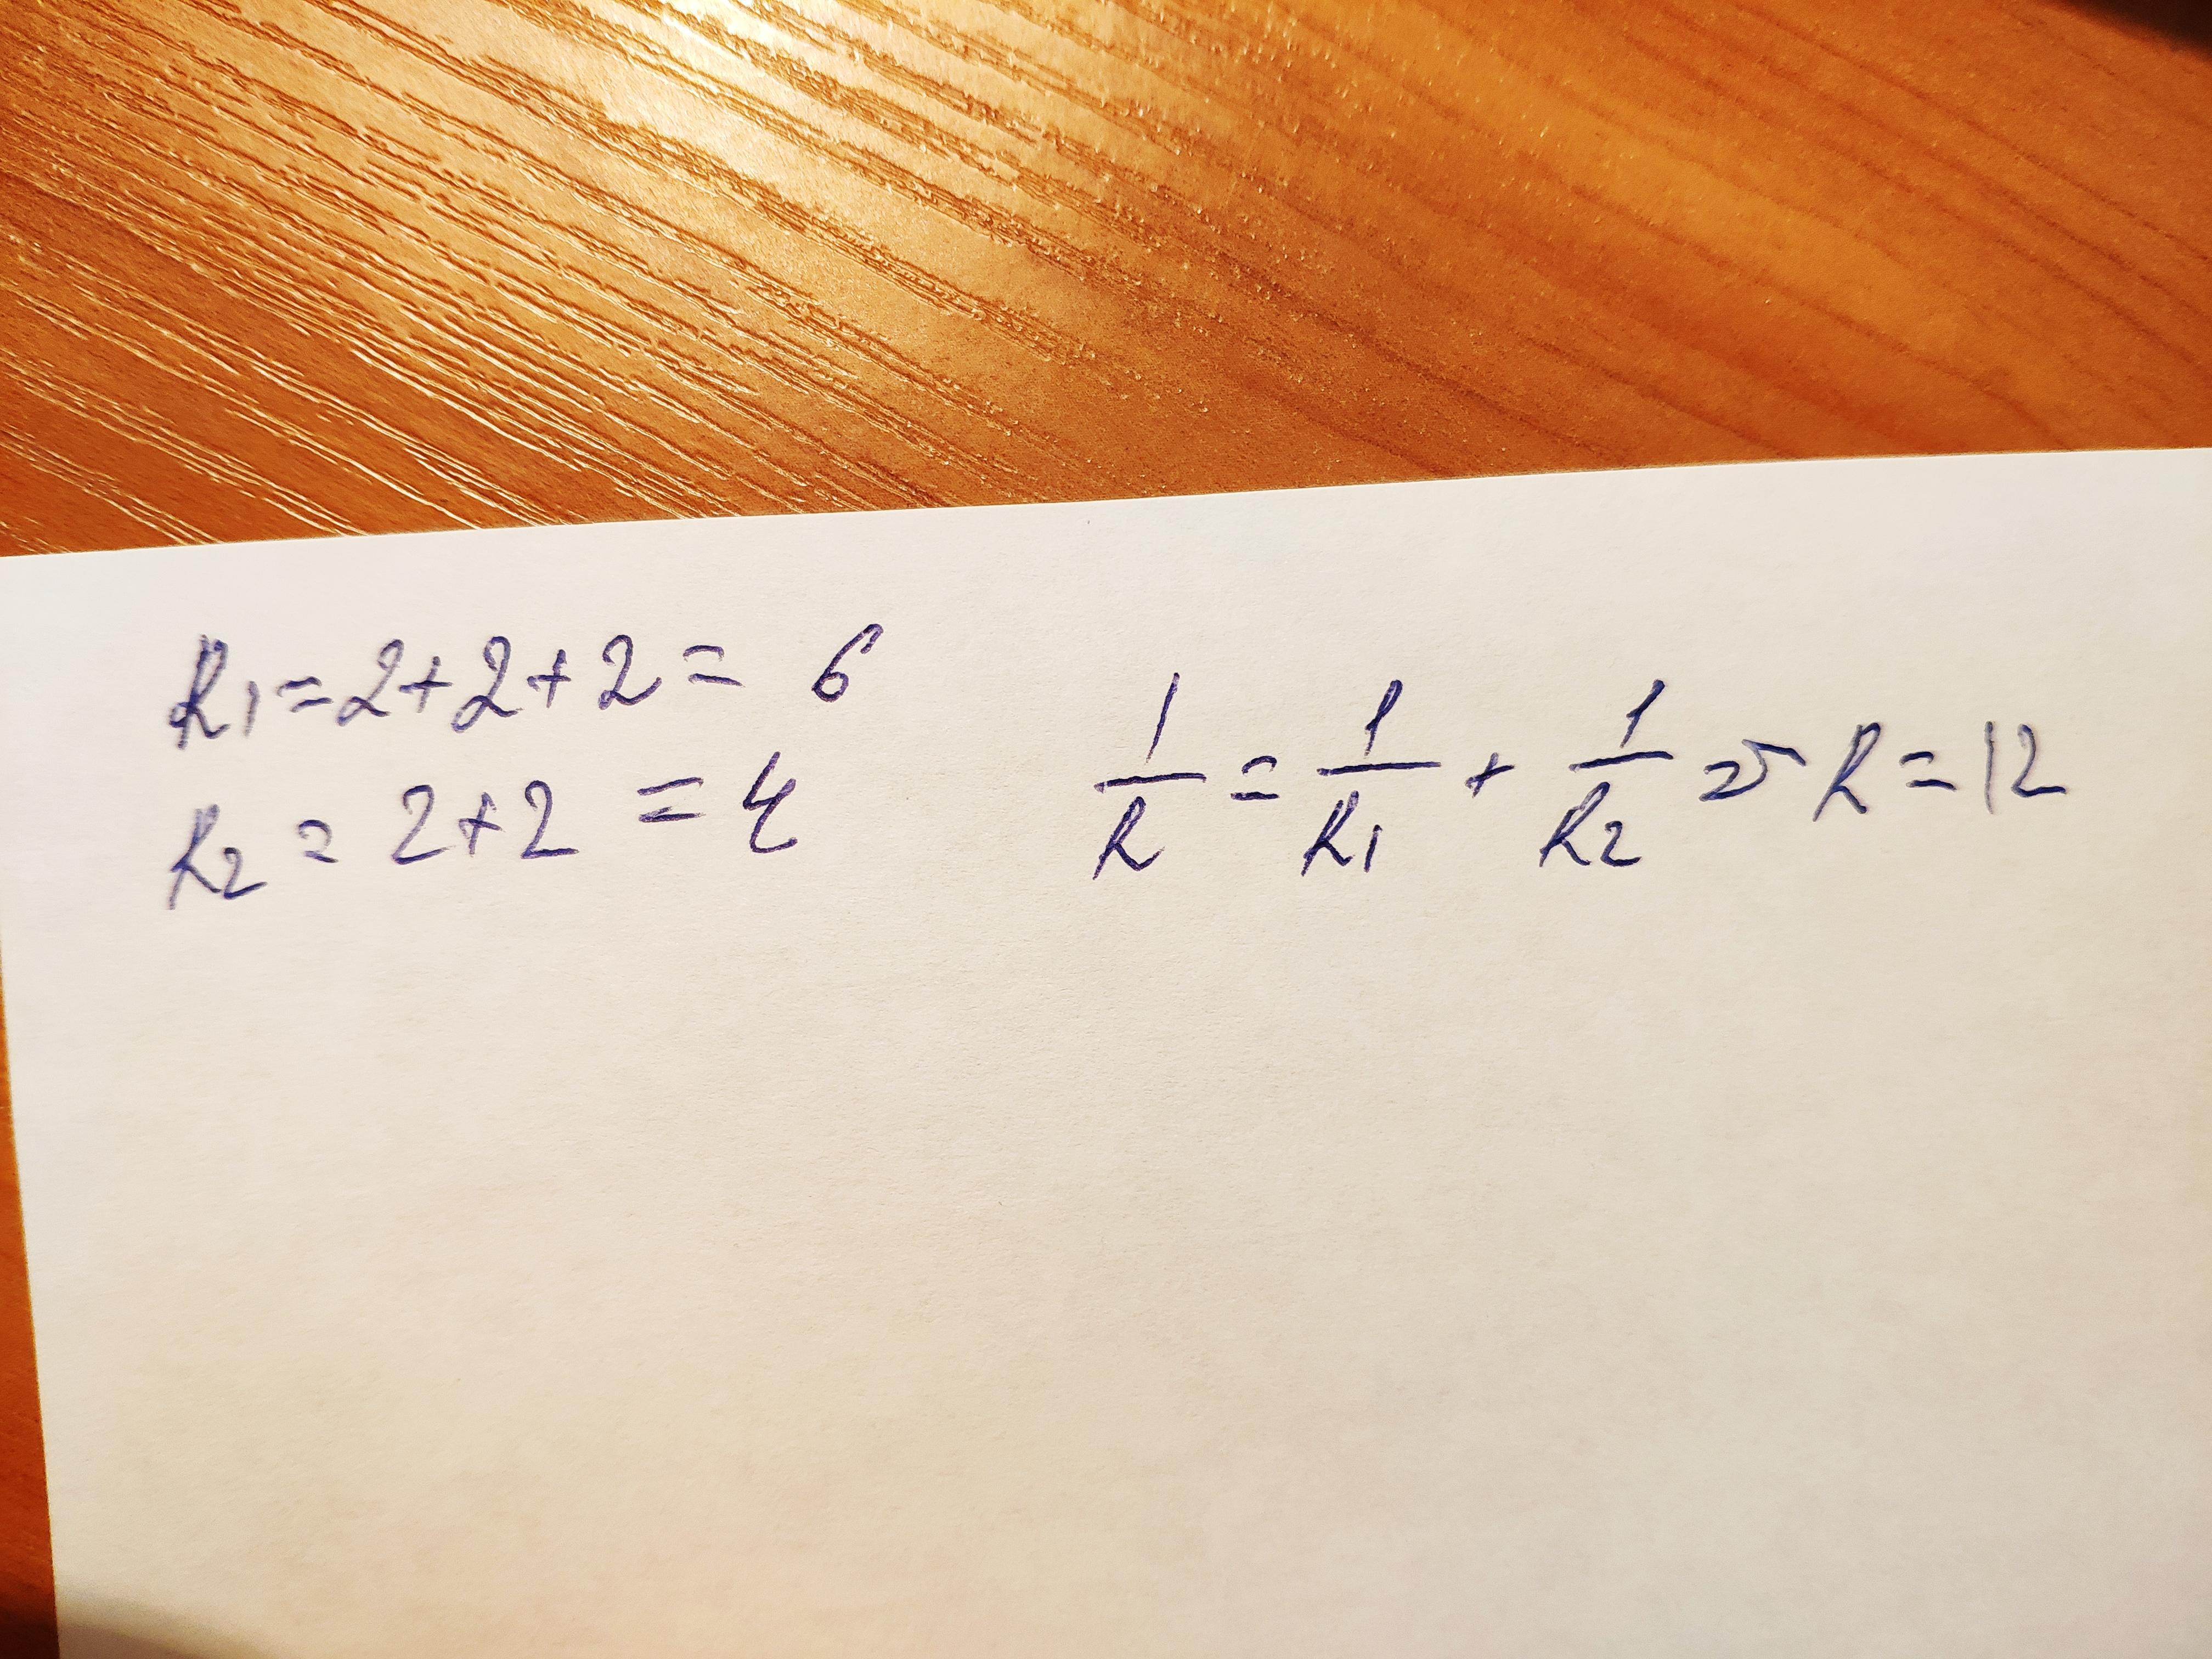 R1 = 2+2+2 = 6
R2 = 2+2 = 4
1/R = 1/R1 + 1/R2 => R = 12